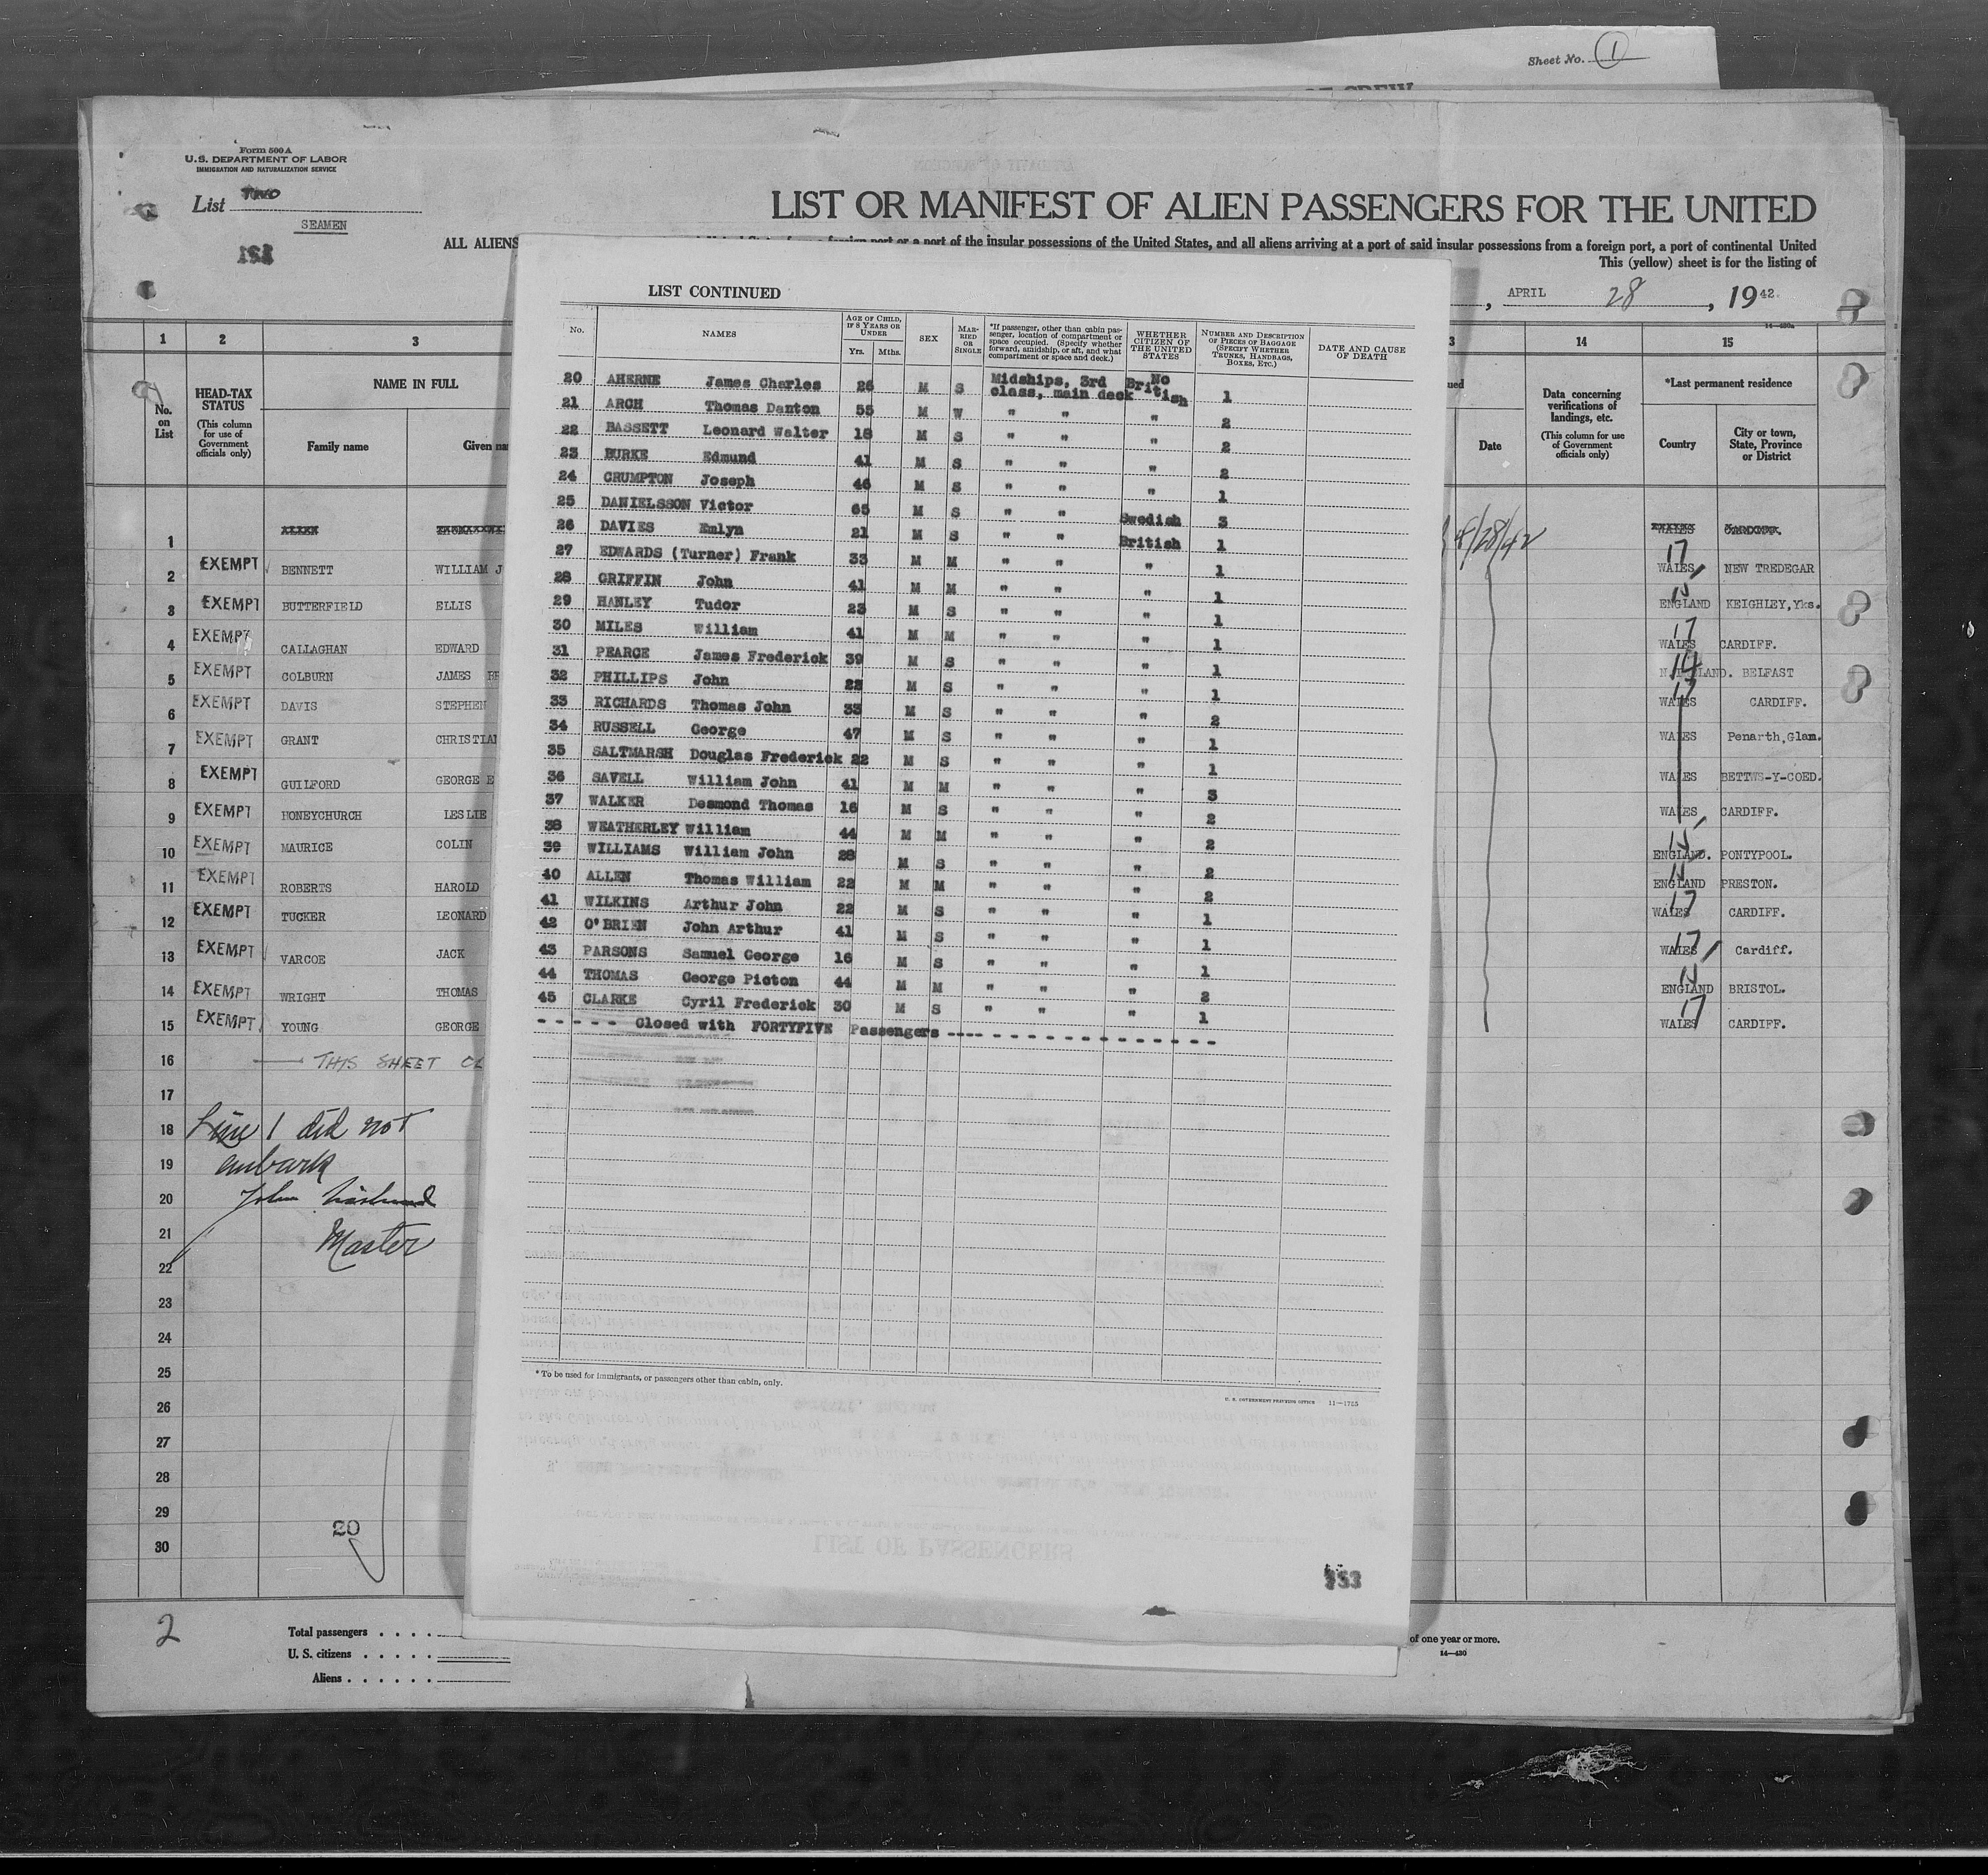 Sheet No. 1
Form 500 A
U.S. DEPARTMENT OF LABOR
IMMIGRATION AND NATURALIZATION SERVICE
List TWO
SEAMEN
LIST OR MANIFEST OF ALIEN PASSENGERS FOR THE UNITED
ALL ALIENS
a foreign port or a port of the insular possessions of the United States, and all aliens arriving at a port of said insular possessions from a foreign port, a port of continental United
This (yellow) sheet is for the listing of
, APRIL 28 , 19 42.
14—430a
1 2 3
No. on List
HEAD-TAX STATUS
(This column for use of Government officials only)
NAME IN FULL
Family name
Given na
1
2 EXEMPT BENNETT WILLIAM J
3 EXEMPT BUTTERFIELD ELLIS
4 EXEMPT CALLAGHAN EDWARD
5 EXEMPT COLBURN JAMES
6 EXEMPT DAVIS STEPHEN
7 EXEMPT GRANT CHRISTIAN
8 EXEMPT GUILFORD GEORGE E
9 EXEMPT HONEYCHURCH LESLIE
10 EXEMPT MAURICE COLIN
11 EXEMPT ROBERTS HAROLD
12 EXEMPT TUCKER LEONARD
13 EXEMPT VARCOE JACK
14 EXEMPT WRIGHT THOMAS
15 EXEMPT YOUNG GEORGE
16 THIS SHEET CL
17
18 Line 1 did not
19 embark
20 John
21 Master
22
23
24
25
26
27
28
29 20
30
2
Total passengers . . . .
U. S. citizens . . . . .
Aliens . . . . . .
LIST CONTINUED
No.
NAMES
AGE OF CHILD, IF 8 YEARS OR UNDER
Yrs. Mths.
SEX
MARRIED OR SINGLE
*If passenger, other than cabin passenger, location of compartment or space occupied. (Specify whether forward, amidship, or aft, and what compartment or space and deck.)
WHETHER CITIZEN OF THE UNITED STATES
NUMBER AND DESCRIPTION OF PIECES OF BAGGAGE (SPECIFY WHETHER TRUNKS, HANDBAGS, BOXES, ETC.)
DATE AND CAUSE OF DEATH
20 AHERNE James Charles 26 M S Midships, 3rd class, main deck No British 1
21 ARCH Thomas Danton 55 M W " " " 2
22 BASSETT Leonard Walter 18 M S " " " 2
23 BURKE Edmund 41 M S " " " 2
24 CRUMPTON Joseph 46 M S " " " 1
25 DANIELSSON Victor 65 M S " " Swedish 3
26 DAVIES Emlyn 21 M S " " British 1
27 EDWARDS (Turner) Frank 33 M M " " " 1
28 GRIFFIN John 41 M M " " " 1
29 HANLEY Tudor 23 M S " " " 1
30 MILES William 41 M M " " " 1
31 PEARCE James Frederick 39 M S " " " 1
32 PHILLIPS John M S " " " 1
33 RICHARDS Thomas John 33 M S " " " 2
34 RUSSELL George 47 M S " " " 1
35 SALTMARSH Douglas Frederick 22 M S " " " 1
36 SAVELL William John 41 M M " " " 3
37 WALKER Desmond Thomas 16 M S " " " 2
38 WEATHERLEY William 44 M M " " " 2
39 WILLIAMS William John 28 M S " " " 2
40 ALLEN Thomas William 22 M M " " " 2
41 WILKINS Arthur John 22 M S " " " 1
42 O'BRIEN John Arthur 41 M S " " " 1
43 PARSONS Samuel George 16 M S " " " 1
44 THOMAS George Picton 44 M M " " " 2
45 CLARKE Cyril Frederick 30 M S " " " 1
- - - - - Closed with FORTYFIVE Passengers - - - - - - - - - - - - - - - -
* To be used for immigrants, or passengers other than cabin, only.
U. S. GOVERNMENT PRINTING OFFICE 11—1755
353
14 15
ued
Date
Data concerning verifications of landings, etc.
(This column for use of Government officials only)
*Last permanent residence
Country
City or town, State, Province or District
4/28/42
17
WALES NEW TREDEGAR
15
ENGLAND KEIGHLEY, Yks.
17
WALES CARDIFF.
14
N. IRELAND. BELFAST
17
WALES CARDIFF.
WALES Penarth, Glam.
WALES BETTWS-Y-COED.
WALES CARDIFF.
15
ENGLAND. PONTYPOOL.
15
ENGLAND PRESTON.
17
WALES CARDIFF.
17
WALES Cardiff.
15
ENGLAND BRISTOL.
17
WALES CARDIFF.
of one year or more.
14—430